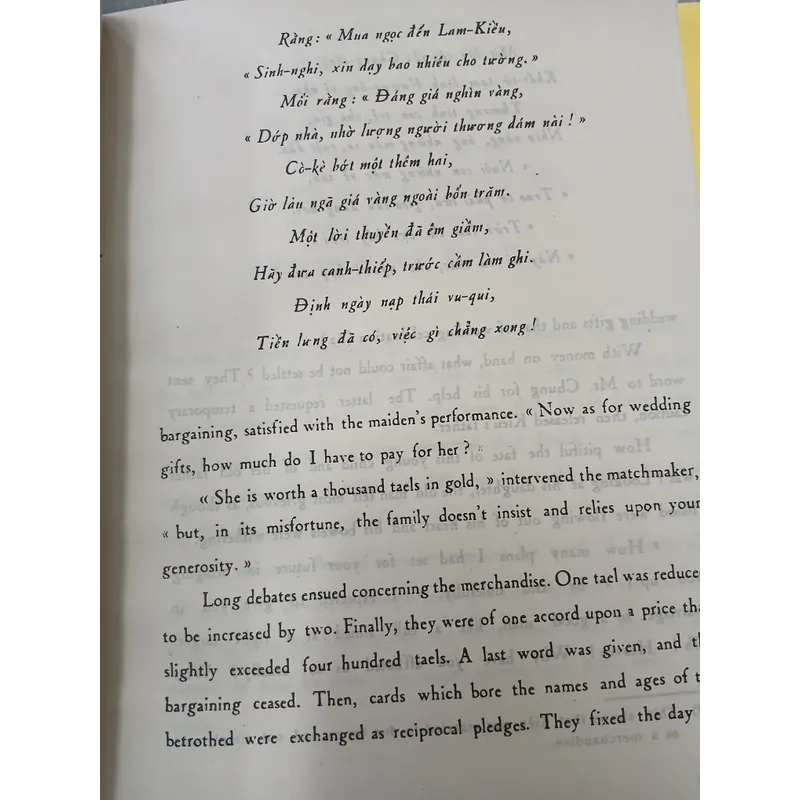 Rằng : « Mua ngọc đến Lam-Kiều,
« Sinh-nghi, xin dạy bao nhiêu cho tường. »
Mối rằng : « Đáng giá nghìn vàng,
« Dớp nhà, nhờ lượng người thương dám nài ! »
Cò-kè bớt một thêm hai,
Giờ lâu ngã giá vàng ngoài bốn trăm.
Một lời thuyền đã êm giầm,
Hãy đưa canh-thiếp, trước cầm làm ghi.
Định ngày nạp thái vu-qui,
Tiền lưng đã có, việc gì chẳng xong !
bargaining, satisfied with the maiden's performance. « Now as for wedding
gifts, how much do I have to pay for her ? »
« She is worth a thousand taels in gold, » intervened the matchmaker,
« but, in its misfortune, the family doesn't insist and relies upon your
generosity. »
Long debates ensued concerning the merchandise. One tael was reduce
to be increased by two. Finally, they were of one accord upon a price tha
slightly exceeded four hundred taels. A last word was given, and th
bargaining ceased. Then, cards which bore the names and ages of t
betrothed were exchanged as reciprocal pledges. They fixed the day